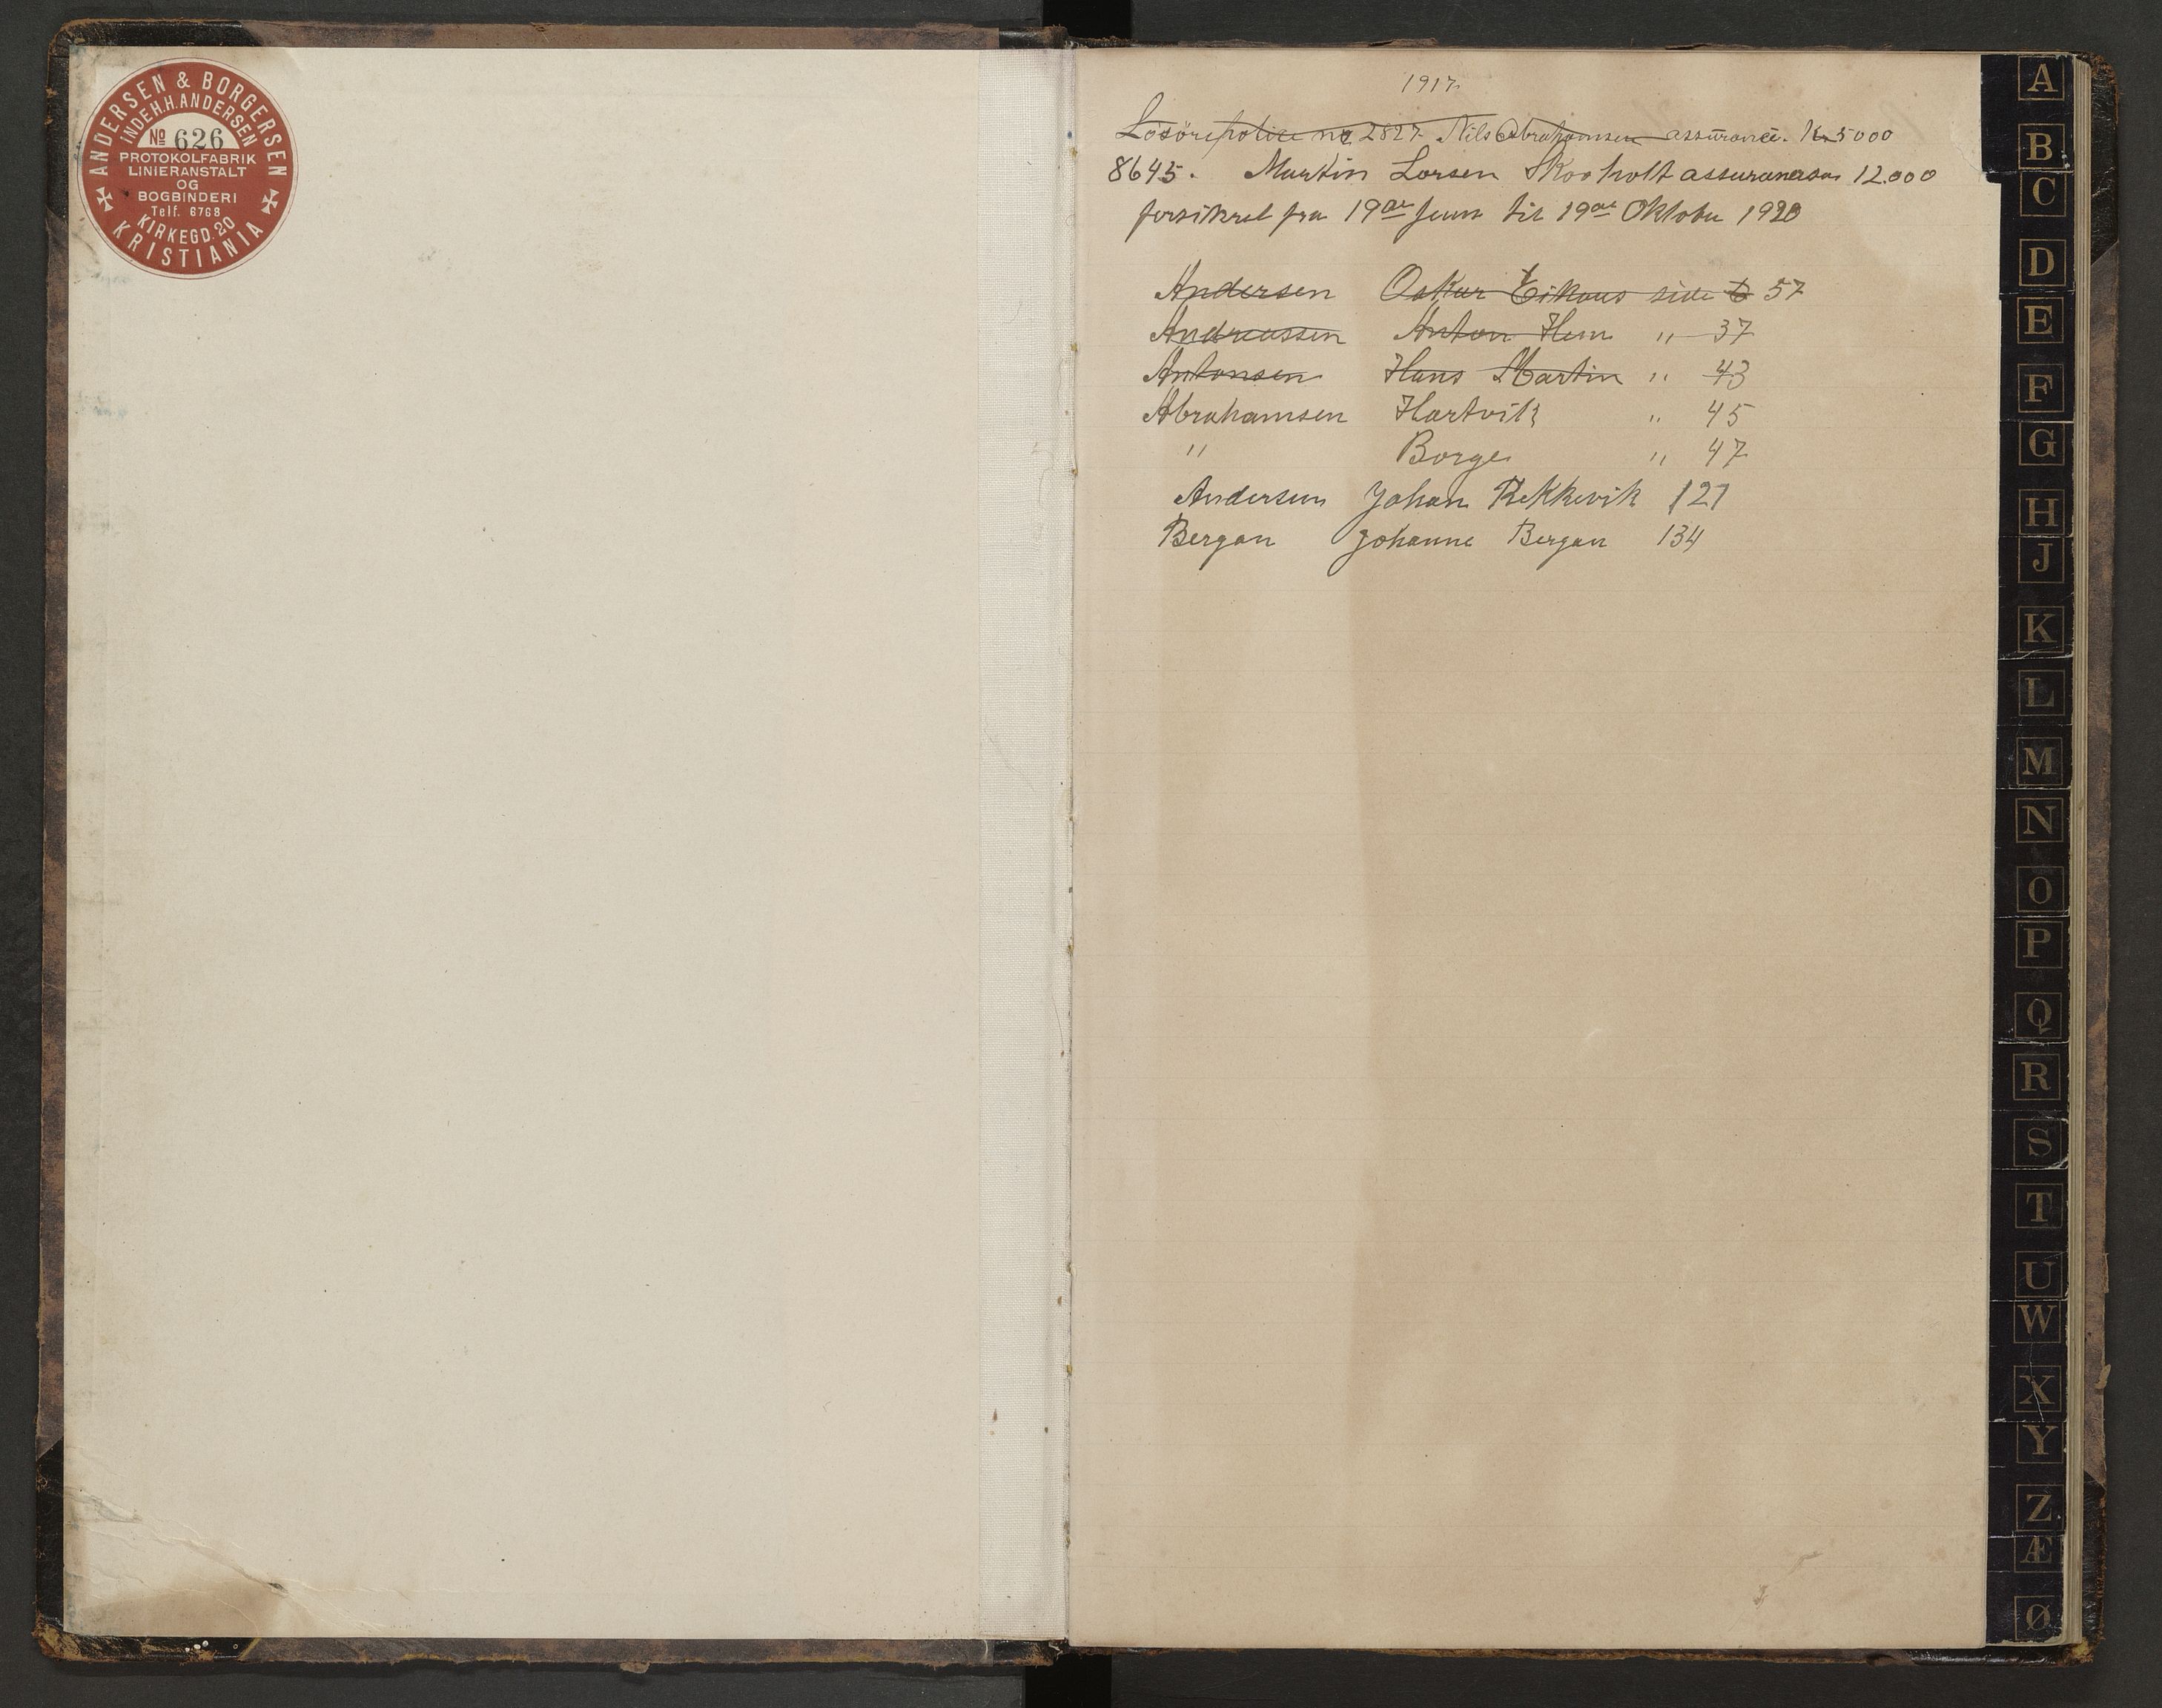 ANDERSEN & BORGERSEN
INDEH. H. ANDERSEN
No 626
PROTOKOLFABRIK
LINIERANSTALT
OG
BOGBINDERI
Telf. 6768
KIRKEGD. 20
KRISTIANIA
1917
Lösörepolice nr 2827 Nils Abrahamsen assurance. Kr 5000
8645. Martin Larsen Skovholt 12.000
forsikret fra 19de Juni til 19de Oktober 1920
Andersen Oskar Eikaas side 57
Andreassen Anton Hem " 37
Antonsen Hans Martin " 43
Abrahamsen Hartvik " 45
" Borge " 47
Andersen Johan Rekkevik 121
Bergan Johanne Bergan 134
A
B
C
D
E
F
G
H
J
K
L
M
N
O
P
Q
R
S
T
U
W
X
Y
Z
Æ
Ø